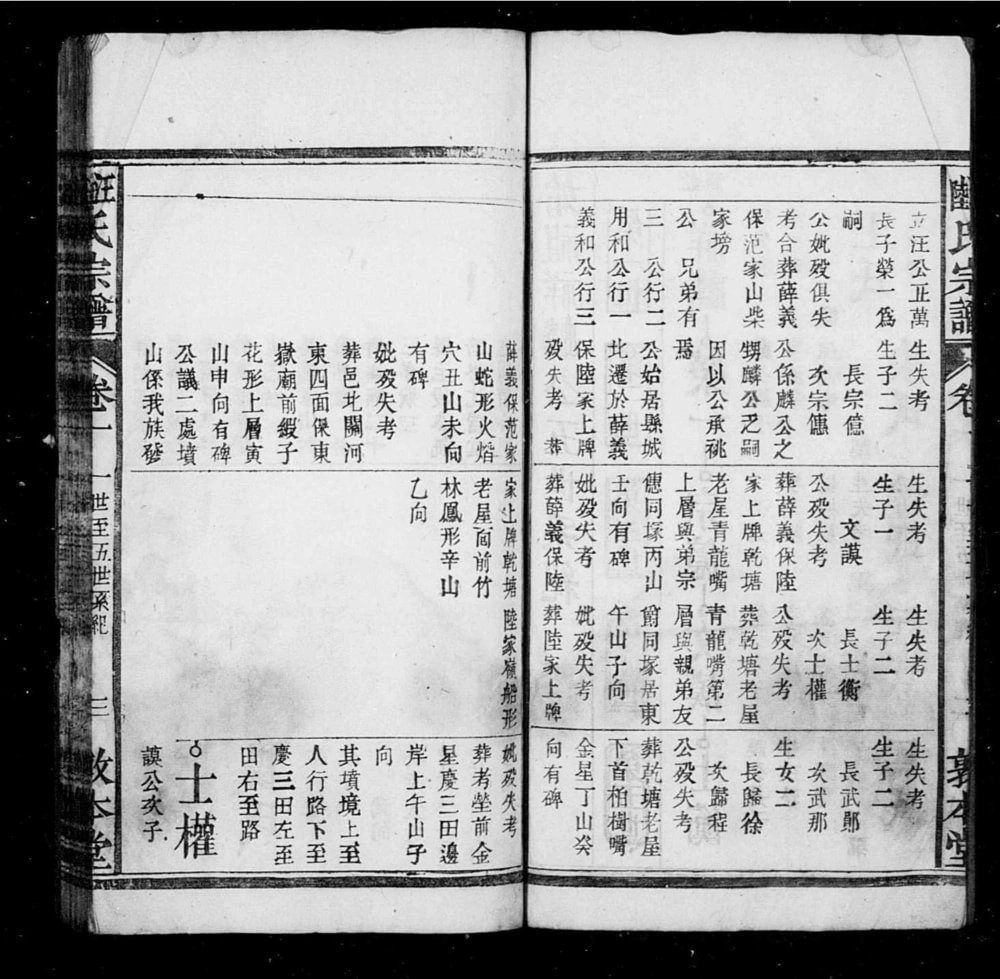 氏宗譜
敦本堂
立汪公正萬
長子榮一爲
嗣
公妣歿俱失
考合葬薛義
保范家山柴
家塝
公 兄弟有
三 公行二
用和公行一
義和公行三
生失考
生子二
長宗億
次宗僡
公係麟公之
甥麟公乏嗣
因以公承祧
焉
公始居縣城
北遷於薛義
保陸家上牌
歿失考 葬
薛義保范家
山蛇形火熖
穴丑山未向
有碑
妣歿失考
葬邑北關河
東四面保東
嶽廟前緞子
花形上層寅
山申向有碑
公議二處墳
山係我族發
生失考
生子一
文謨
公歿失考
葬薛義保陸
家上牌乾塘
老屋青龍嘴
上層與弟宗
僡同塚丙山
壬向有碑
妣歿失考
葬薛義保陸
家上牌乾塘
老屋面前竹
林鳳形辛山
乙向
生失考
生子二
長士衡
次士權
公歿失考
葬乾塘老屋
青龍嘴第二
層與親弟友
爵同塚居東
午山子向
妣歿失考
葬陸家上牌
陸家嶺船形
生失考
生子二
長武鄖
次武那
生女二
長歸徐
次歸程
公歿失考
葬乾塘老屋
下首柏樹嘴
金星丁山癸
向有碑
妣歿失考
葬考塋前金
星慶三田邊
岸上午山子
向
其墳境上至
人行路下至
慶三田左至
田右至路
士權
謨公次子
汪氏宗譜 卷一 一世至五世系紀 三 敦本堂